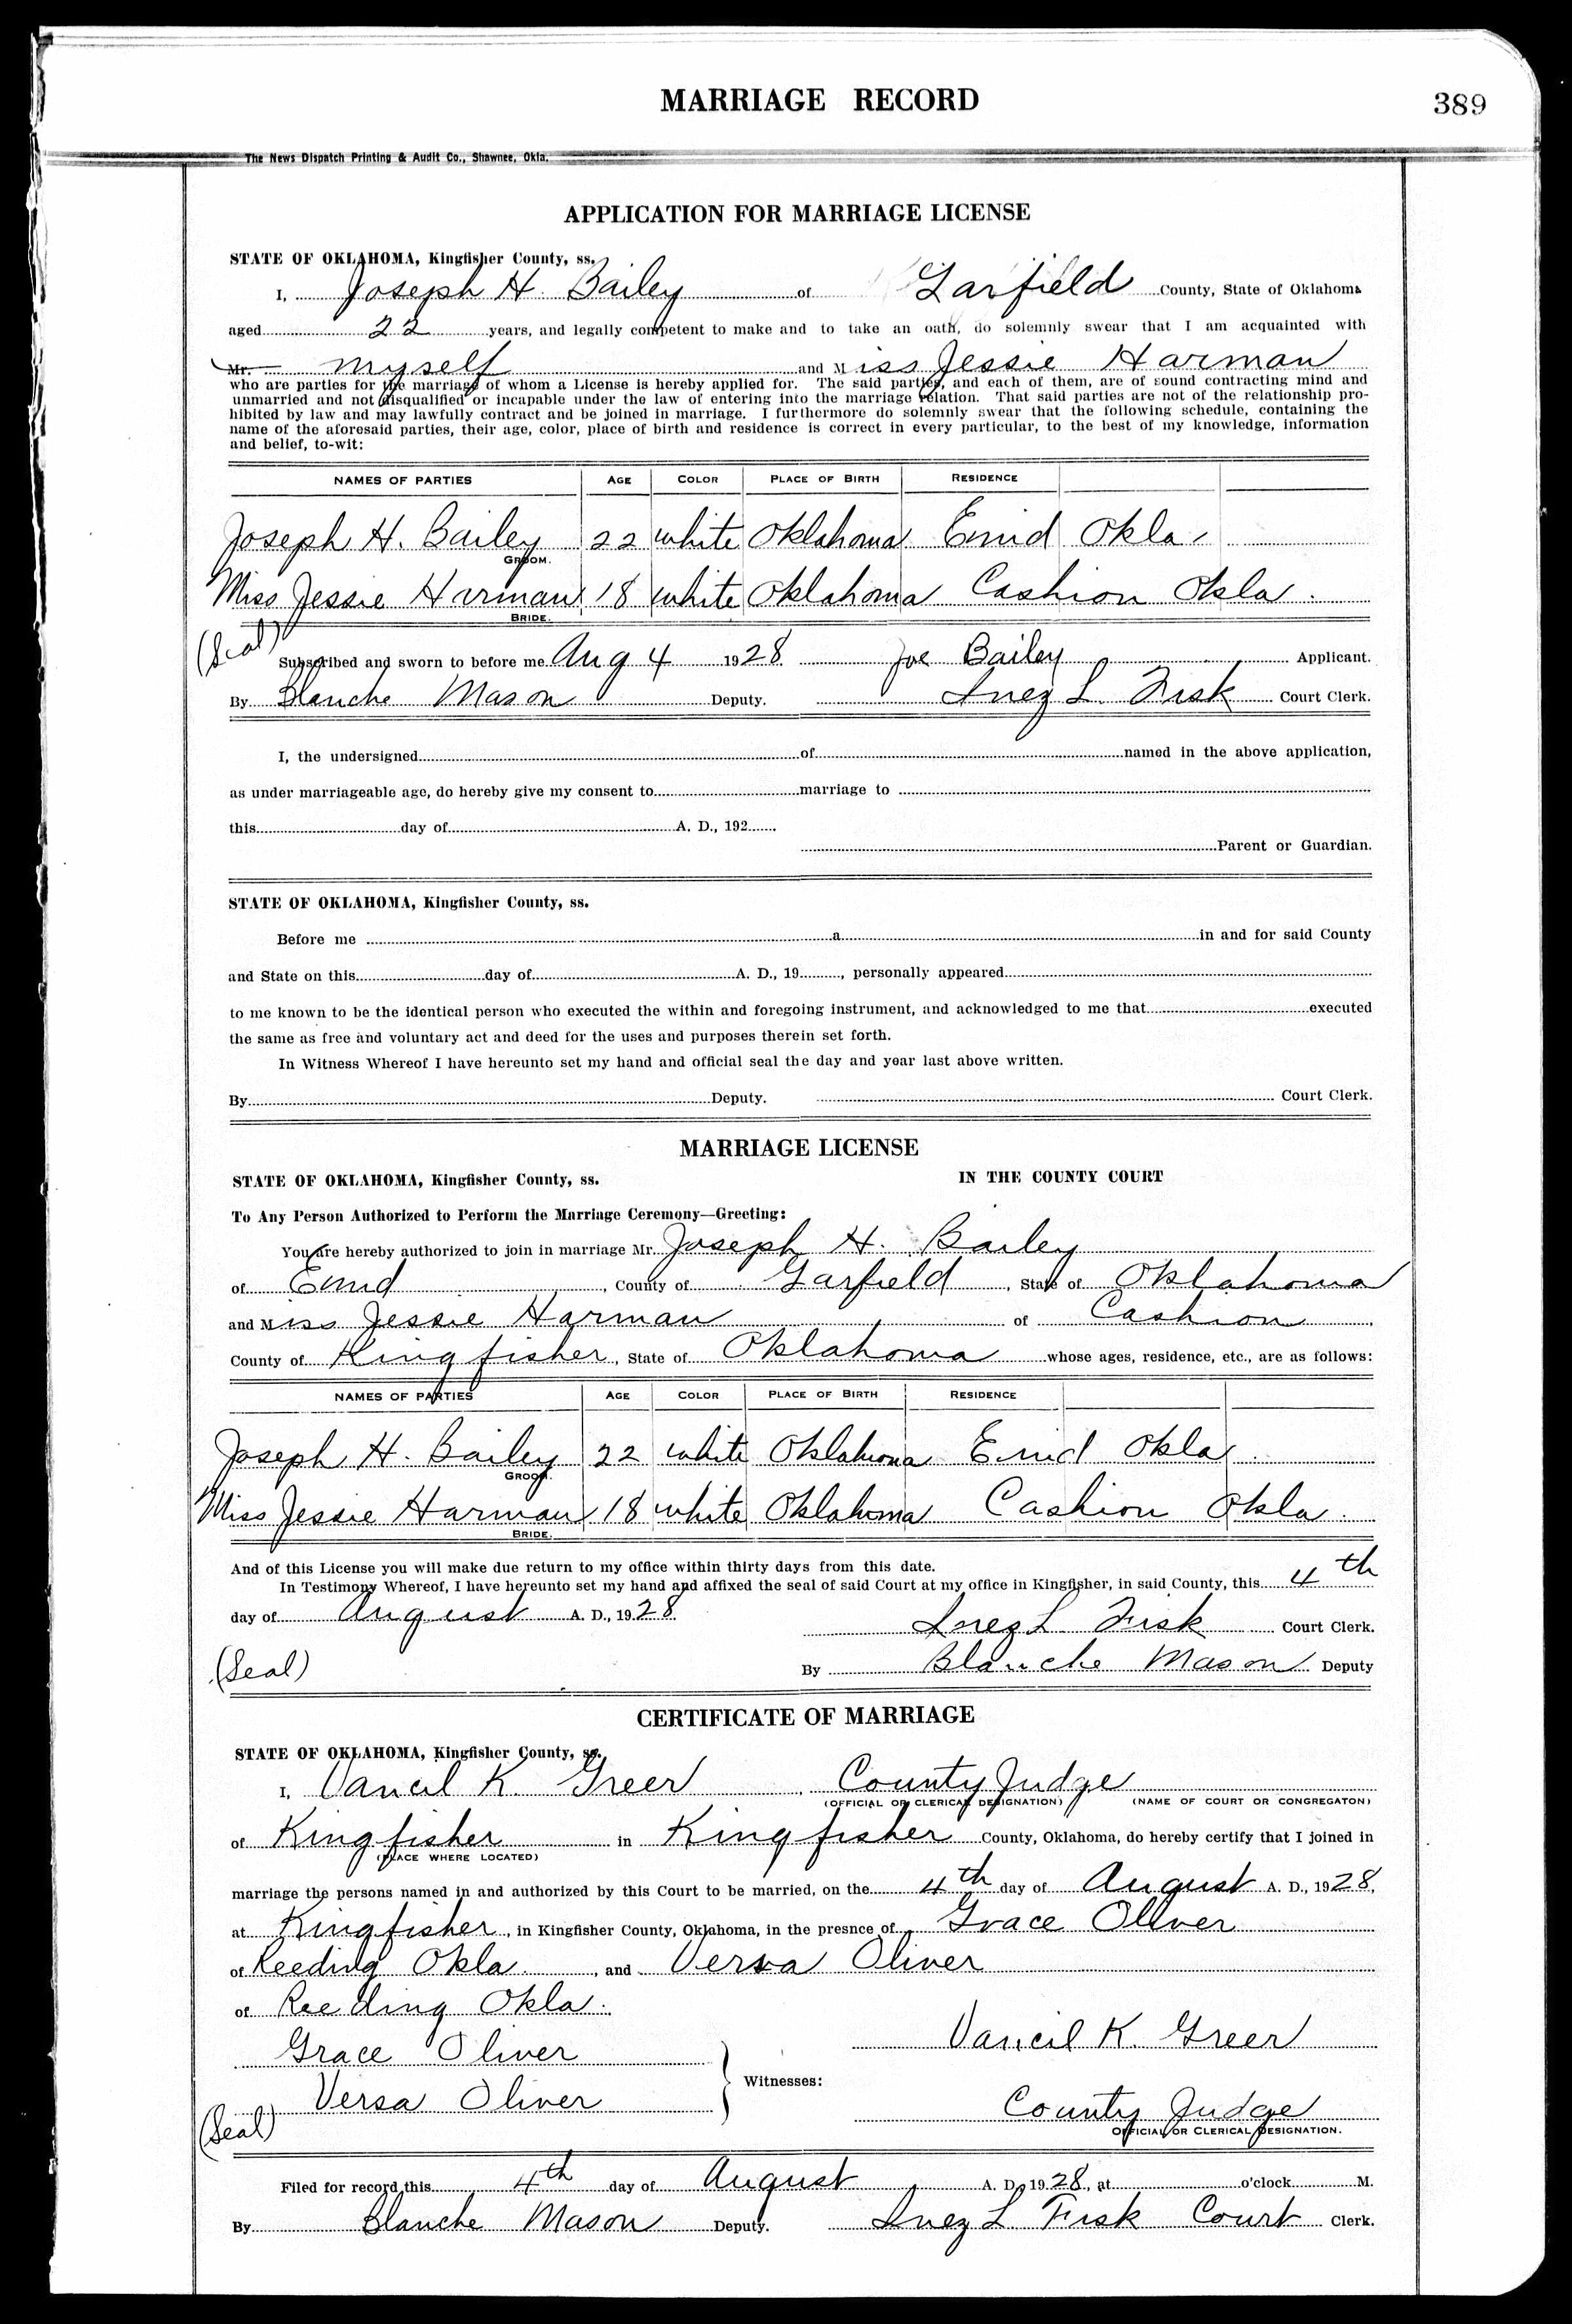 MARRIAGE RECORD
389
The News Dispatch Printing & Audit Co., Shawnee, Okla.
APPLICATION FOR MARRIAGE LICENSE
STATE OF OKLAHOMA, Kingfisher County, ss.
I, Joseph H. Bailey of Garfield County, State of Oklahoma
aged 22 years, and legally competent to make and to take an oath, do solemnly swear that I am acquainted with
Mr. myself and Miss Jessie Harman
who are parties for the marriage of whom a License is hereby applied for. The said parties, and each of them, are of sound contracting mind and
unmarried and not disqualified or incapable under the law of entering into the marriage relation. That said parties are not of the relationship pro-
hibited by law and may lawfully contract and be joined in marriage. I furthermore do solemnly swear that the following schedule, containing the
name of the aforesaid parties, their age, color, place of birth and residence is correct in every particular, to the best of my knowledge, information
and belief, to-wit:
NAMES OF PARTIES AGE COLOR PLACE OF BIRTH RESIDENCE
Joseph H. Bailey 22 white Oklahoma Enid Okla.
GROOM.
Miss Jessie Harman 18 white Oklahoma Cashion Okla.
BRIDE.
(Seal)
Subscribed and sworn to before me Aug 4 1928 Joe Bailey Applicant.
By Blanche Mason Deputy. Inez L. Fisk Court Clerk.
I, the undersigned of named in the above application,
as under marriageable age, do hereby give my consent to marriage to
this day of A. D., 192
Parent or Guardian.
STATE OF OKLAHOMA, Kingfisher County, ss.
Before me a in and for said County
and State on this day of A. D., 19 , personally appeared
to me known to be the identical person who executed the within and foregoing instrument, and acknowledged to me that executed
the same as free and voluntary act and deed for the uses and purposes therein set forth.
In Witness Whereof I have hereunto set my hand and official seal the day and year last above written.
By Deputy. Court Clerk.
MARRIAGE LICENSE
STATE OF OKLAHOMA, Kingfisher County, ss. IN THE COUNTY COURT
To Any Person Authorized to Perform the Marriage Ceremony—Greeting:
You are hereby authorized to join in marriage Mr. Joseph H. Bailey
of Enid , County of Garfield , State of Oklahoma
and Miss Jessie Harman of Cashion ,
County of Kingfisher , State of Oklahoma whose ages, residence, etc., are as follows:
NAMES OF PARTIES AGE COLOR PLACE OF BIRTH RESIDENCE
Joseph H. Bailey 22 white Oklahoma Enid Okla.
GROOM.
Miss Jessie Harman 18 white Oklahoma Cashion Okla.
BRIDE.
And of this License you will make due return to my office within thirty days from this date.
In Testimony Whereof, I have hereunto set my hand and affixed the seal of said Court at my office in Kingfisher, in said County, this 4th
day of August A. D., 1928
Inez L Fisk Court Clerk.
(Seal) By Blanche Mason Deputy
CERTIFICATE OF MARRIAGE
STATE OF OKLAHOMA, Kingfisher County, ss.
I, Vancil K. Greer , County Judge
(OFFICIAL OR CLERICAL DESIGNATION) (NAME OF COURT OR CONGREGATON)
of Kingfisher in Kingfisher County, Oklahoma, do hereby certify that I joined in
(PLACE WHERE LOCATED)
marriage the persons named in and authorized by this Court to be married, on the 4th day of August A. D., 1928,
at Kingfisher , in Kingfisher County, Oklahoma, in the presnce of Grace Oliver
of Reeding Okla. , and Versa Oliver
of Reeding Okla.
Grace Oliver Vancil K. Greer
Witnesses:
Versa Oliver County Judge
(Seal) OFFICIAL OR CLERICAL DESIGNATION.
Filed for record this 4th day of August A. D. 1928, at o'clock M.
By Blanche Mason Deputy. Inez L. Fisk Court Clerk.